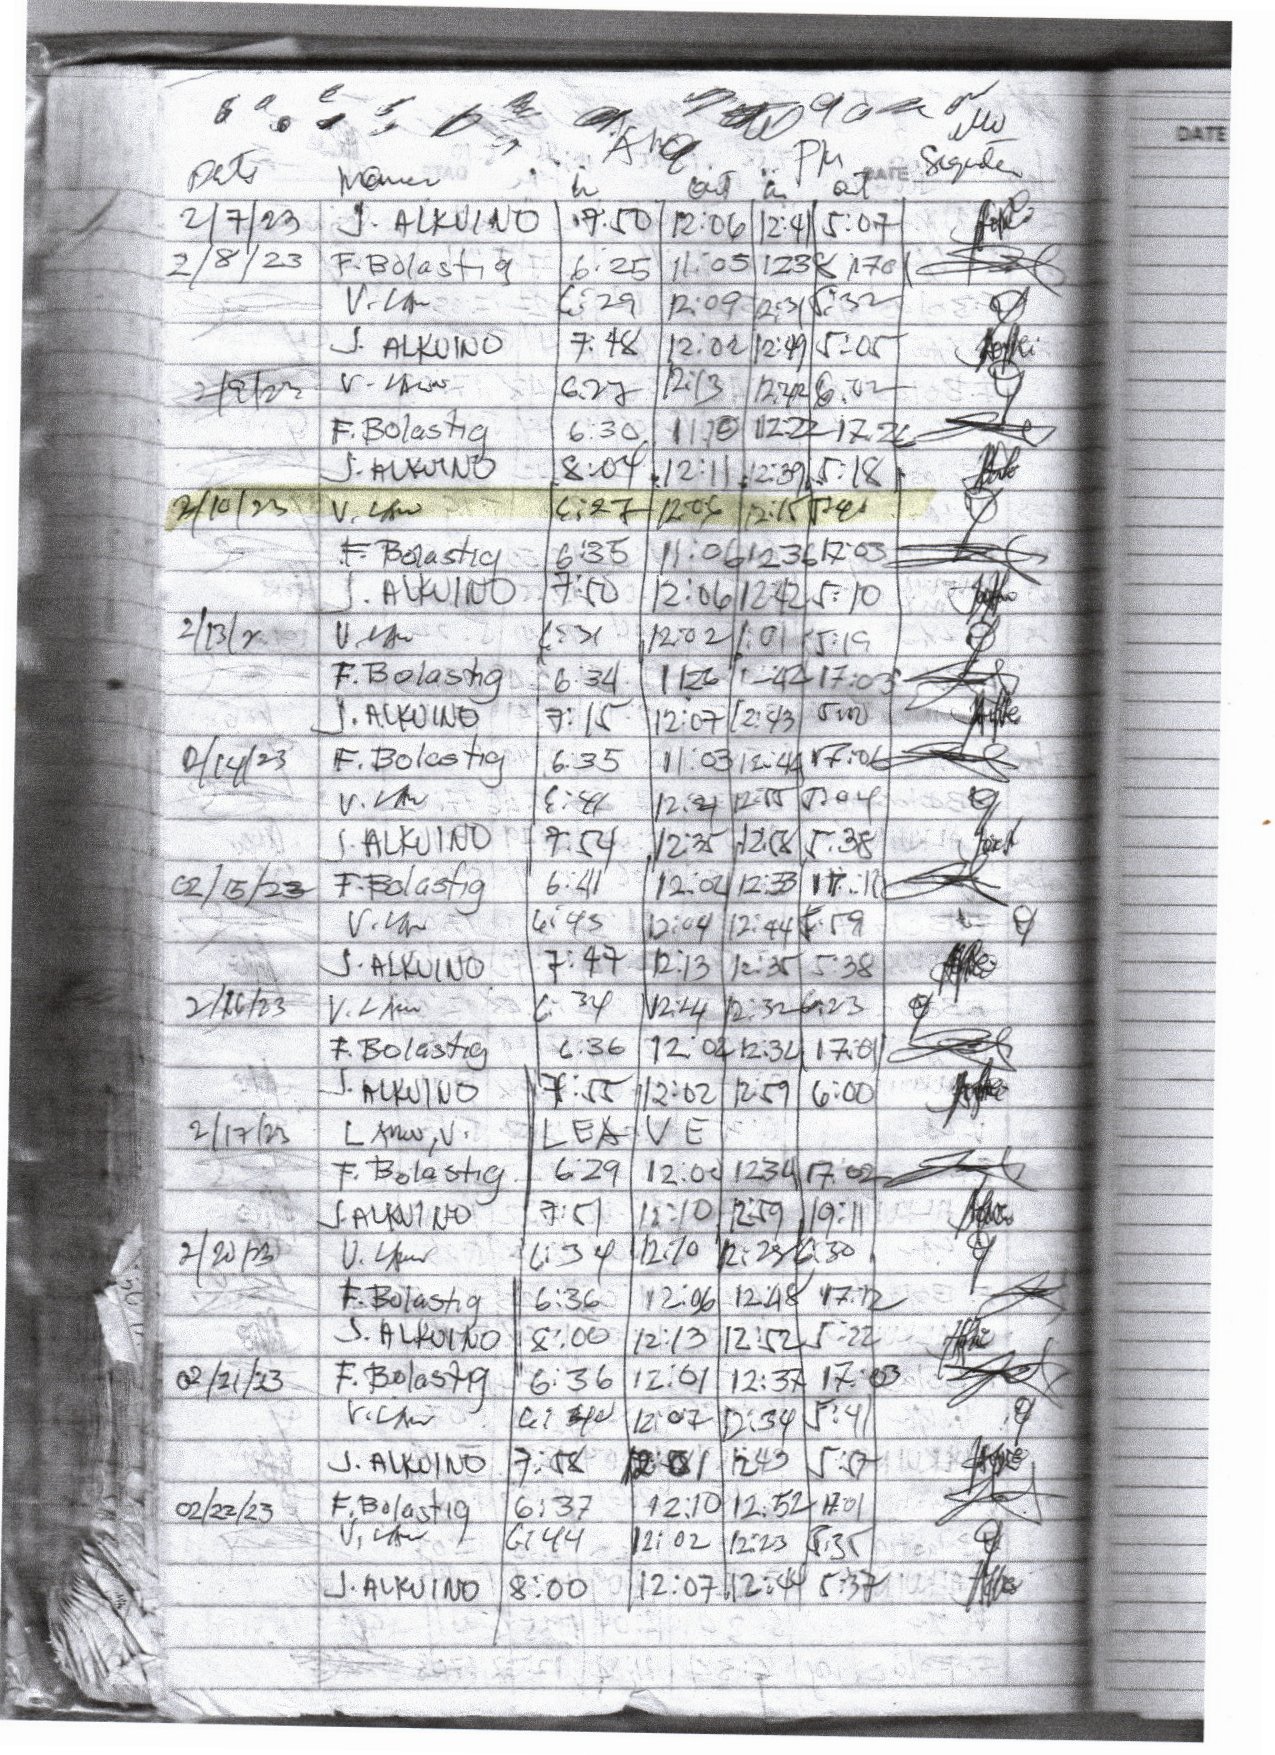 DATE
Date Name in out in out
AM PM
2/7/23 J. ALKUINO 7:50 12:06 12:41 5:07
2/8/23 F. Bolastig 6:25 11:05 1238
V. 6:29 12:09 12:31 5:32
J. ALKUINO 7:48 12:02 12:49 5:05
2/9/23 V. 6:27 12:13 12:42 6:02
F. Bolastig 6:30 12:22 17:26
J. ALKUINO 8:04 12:11 12:39 5:18
2/10/23 V. 6:27 12:06 12:15
F. Bolastig 6:35 11:06 12:36 17:03
J. ALKUINO 7:50 12:06 12:42 5:10
2/13/2 V. 6:31 12:02 1:01 5:19
F. Bolastig 6:34 1126 12:42 17:03
J. ALKUINO 7:15 12:07 12:43
2/14/23 F. Bolastig 6:35 11:03 12:44 17:06
V. 6:41 12:55 5:04
J. ALKUINO 7:54 12:35 12:58 5:38
02/15/23 F. Bolastig 6:41 12:02 12:33
V. 6:43 12:04 12:44 5:59
J. ALKUINO 7:47 12:13 12:35 5:38
2/16/23 V. 6:34 12:44 12:32 6:23
F. Bolastig 6:36 12:02 12:32 17:01
J. ALKUINO 7:55 12:02 12:59 6:00
2/17/23 V. LEAVE
F. Bolastig 6:29 12:00 1234 17:02
J. ALKUINO 7:51 12:10 12:59 19:11
2/20/23 V. 6:34 12:10 12:28 6:30
F. Bolastig 6:36 12:06 12:48 17:12
J. ALKUINO 8:00 12:13 12:52 5:22
02/21/23 F. Bolastig 6:36 12:01 12:37 17:03
V. 12:07 12:34 5:41
J. ALKUINO 7:58 1243 5:57
02/22/23 F. Bolastig 6:37 12:10 12:52 17:01
V. 6:44 12:02 12:23 5:35
J. ALKUINO 8:00 12:07 12:44 5:37